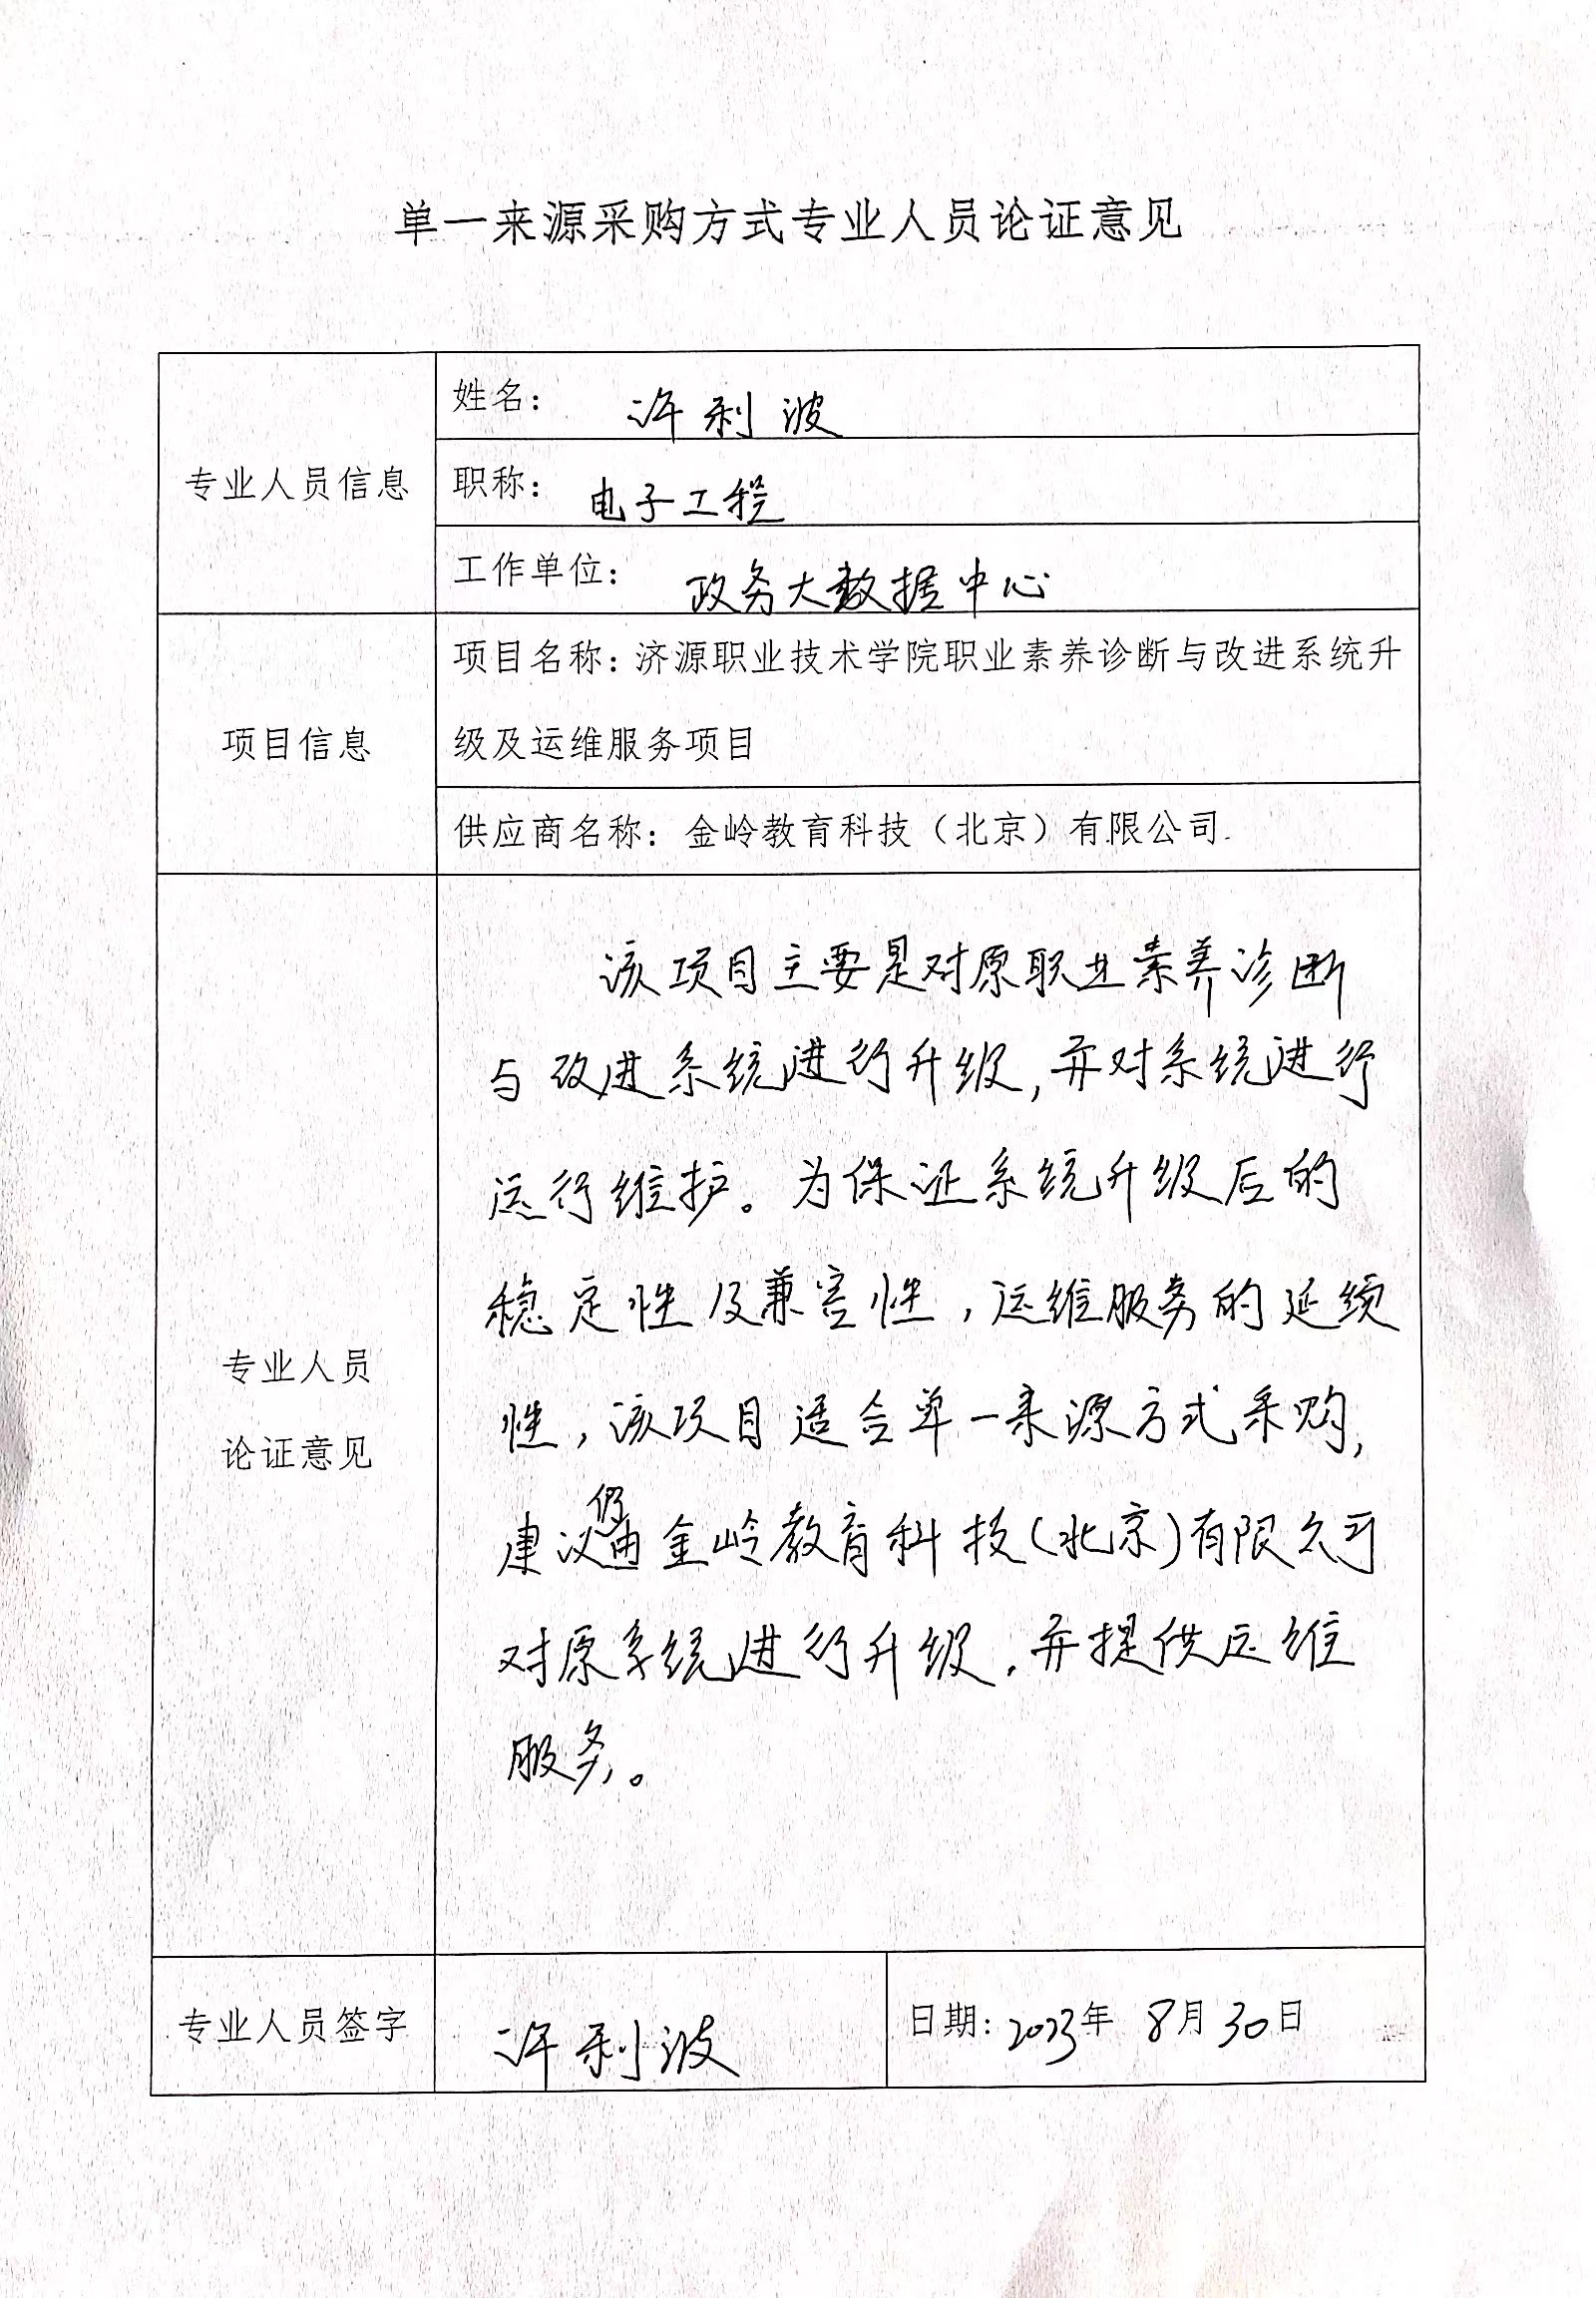 单一来源采购方式专业人员论证意见
专业人员信息
姓名：许利波
职称：电子工程
工作单位：政务大数据中心
项目信息
项目名称：济源职业技术学院职业素养诊断与改进系统升
级及运维服务项目
供应商名称：金岭教育科技（北京）有限公司
专业人员
论证意见
该项目主要是对原职业素养诊断
与改进系统进行升级，并对系统进行
运行维护。为保证系统升级后的
稳定性及兼容性，运维服务的延续
性，该项目适合单一来源方式采购，
建议仍由金岭教育科技(北京)有限公司
对原系统进行升级，并提供运维
服务。
专业人员签字
许利波
日期：2023年 8月30日